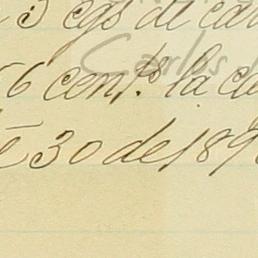 3 cgs de car
Carlos
56 cent.s la ca
30 de 189